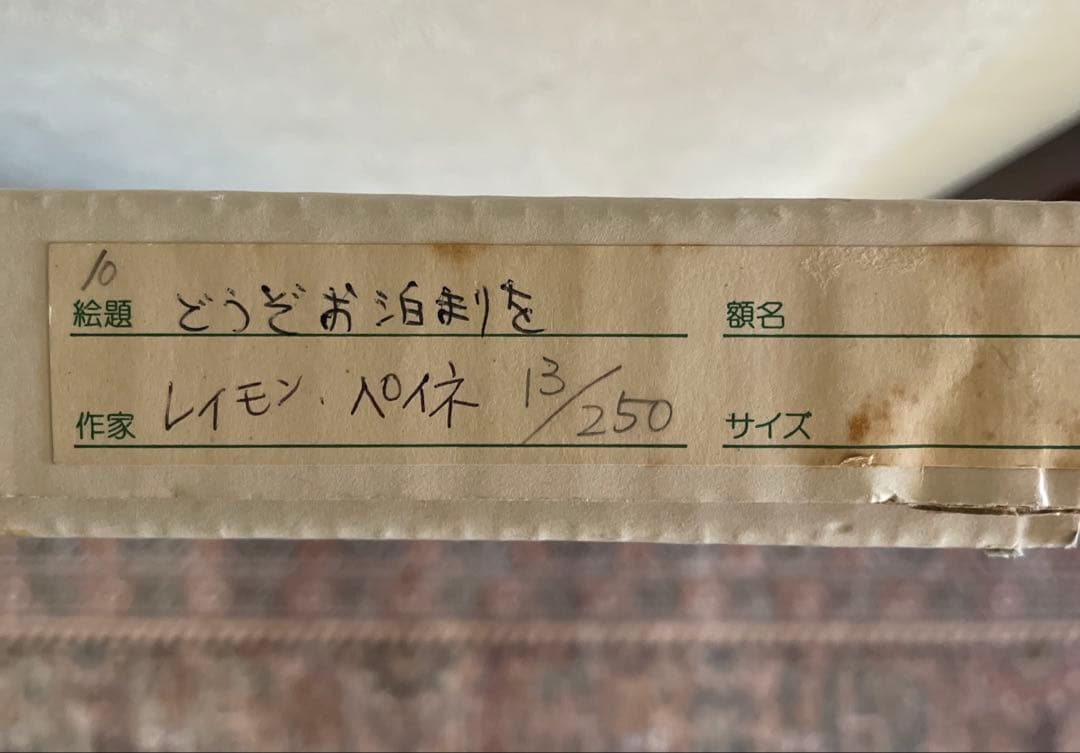 10
絵題 どうぞお泊まりを
額名
作家 レイモン.ペイネ 13/250
サイズ